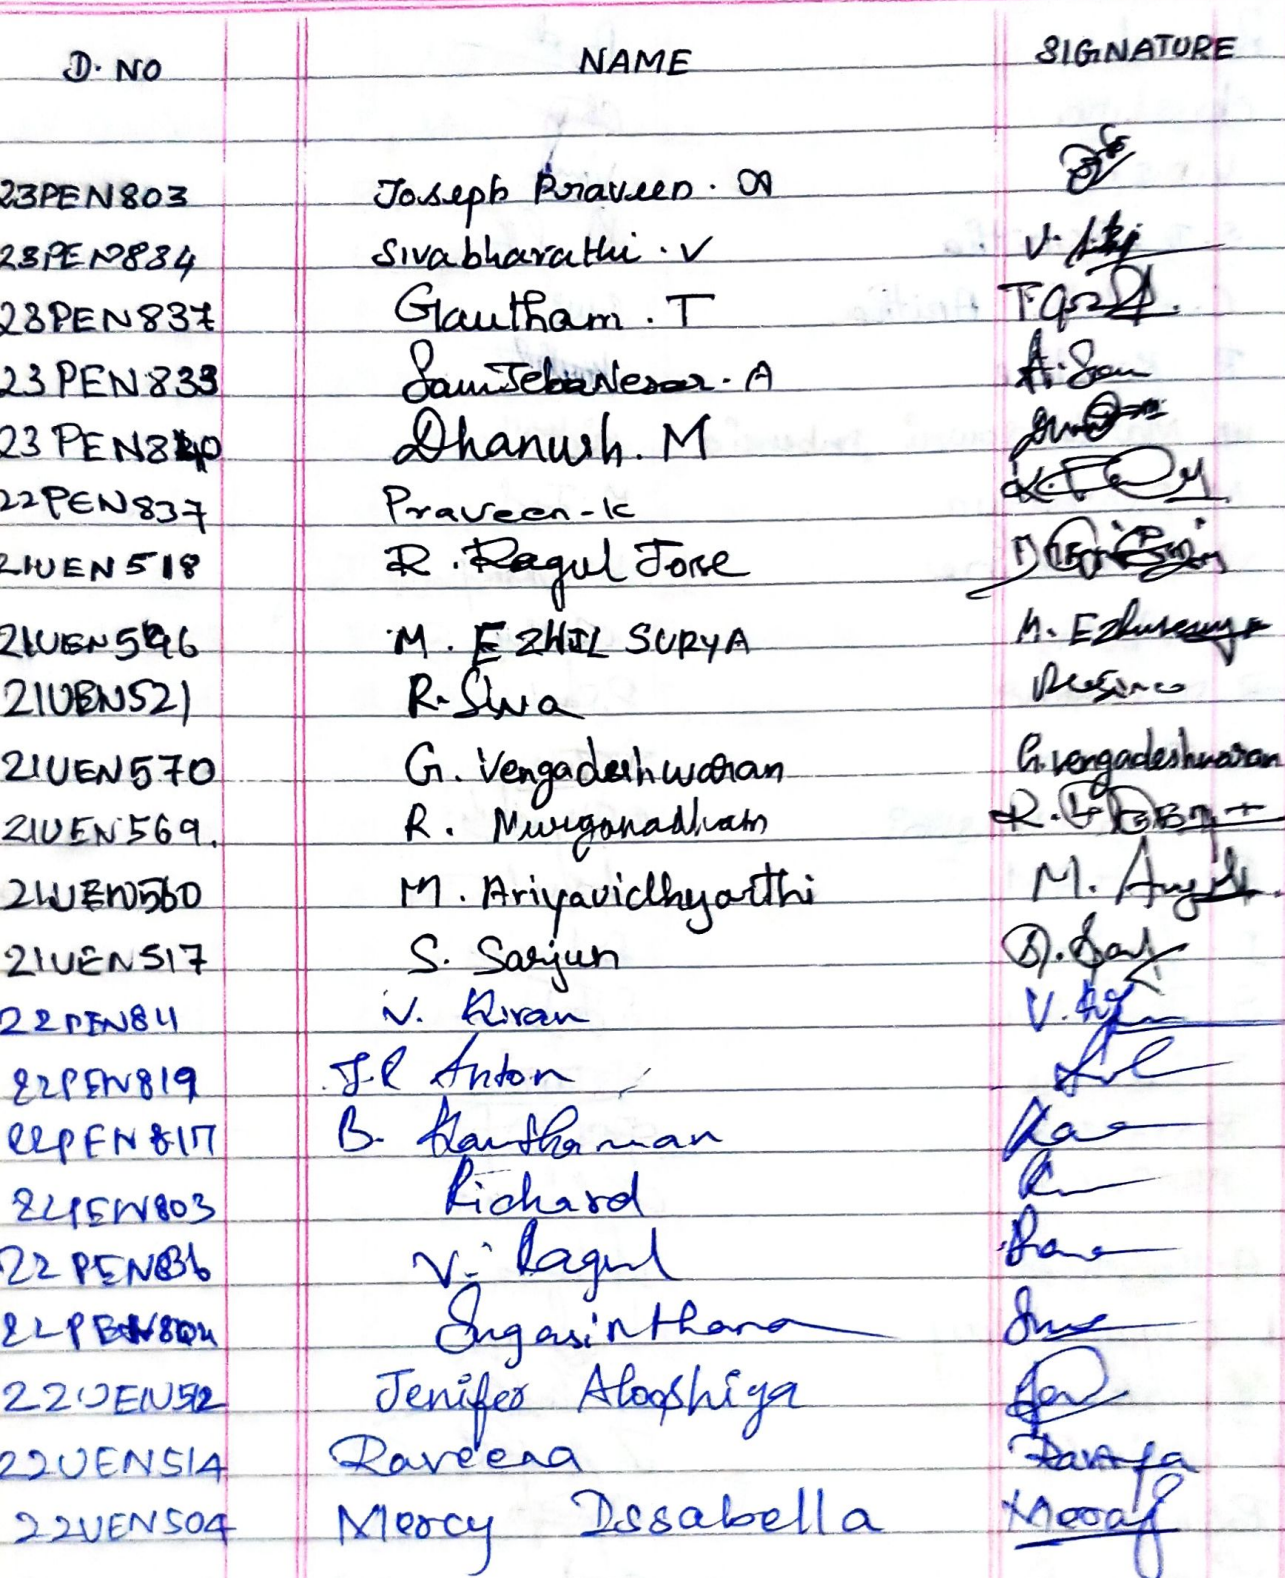 D. NO NAME SIGNATURE
23PEN803 Joseph Praveen.
23PEN834 Sivabharathi. V V.
23PEN837 Gautham. T
23PEN833 Sam Jeba Nesar. A A. Sam
23PEN840 Dhanush. M
22PEN837 Praveen-K
21UEN518 R. Ragul Jose
21UEN596 M. EZHIL SURYA M.
21UEN521 R. Siva
21UEN570 G. Vengadeshwaran G. Vengadeshwaran
21UEN569. R. Murganadham R.
21UEN560 M. Ariyavidhyarthi M.
21UEN517 S. Sarjun
22PEN811 V. Kiran V.
22PEN819 J.R Anton
22PEN817 B. Kanthaman
22PEN803 Richard
22PEN836 V. Ragul
22PEN804 Sugasinthana
22UEN512 Jenifer Alooshiya
22UEN514 Raveena
22UEN504 Mercy Issabella Mercy